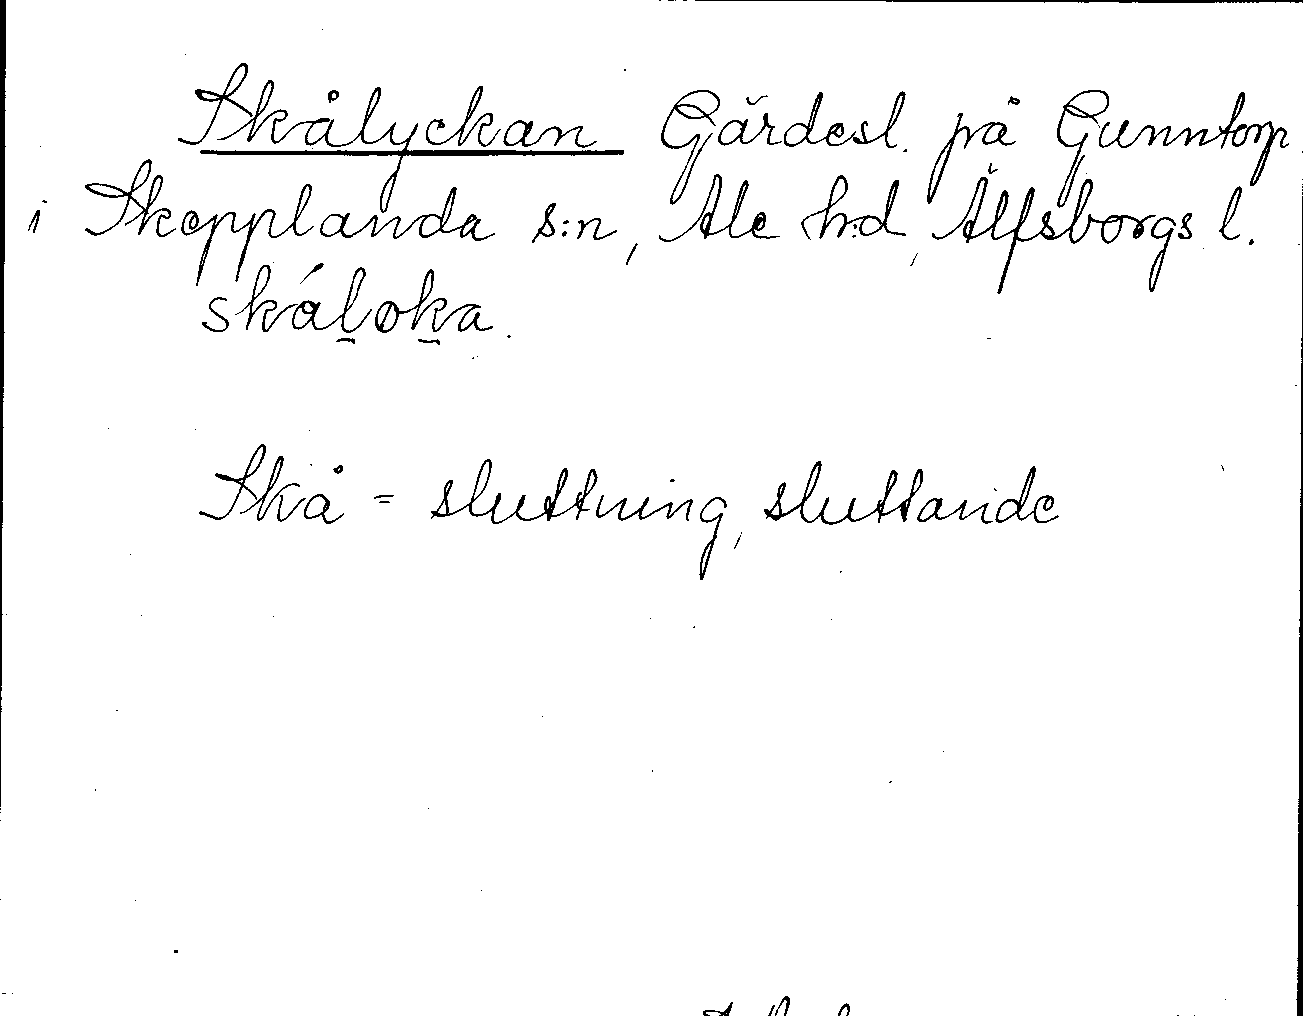 Skålyckan Gärdesl. på Gunntorp
i Skepplanda s:n, Ale h:d, Älfsborgs l.
skáḻøḵa.
Skå = sluttning, sluttande